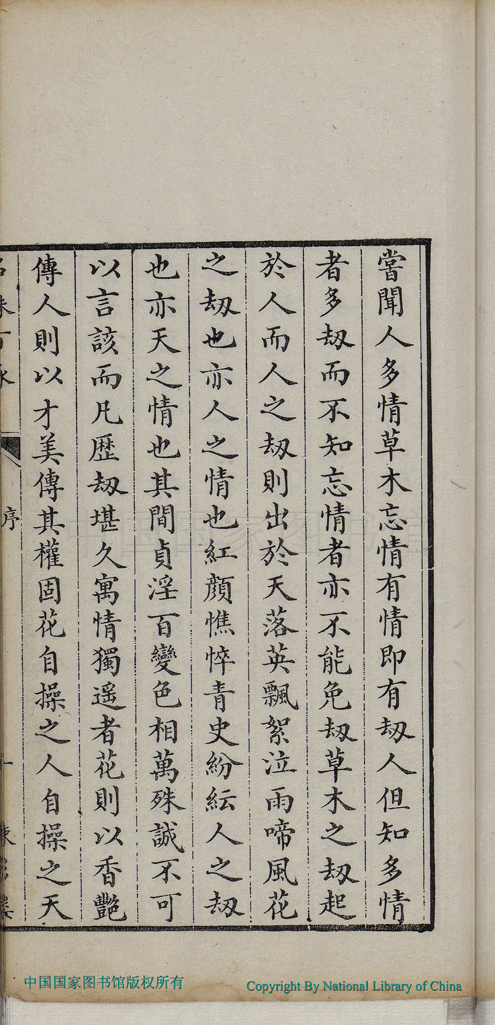 嘗聞人多情草木忘情有情即有刼人但知多情
者多刼而不知忘情者亦不能免刼草木之刼起
於人而人之刼則出於天落英飄絮泣雨啼風花
之刼也亦人之情也紅顏憔悴青史紛紜人之刼
也亦天之情也其間貞淫百變色相萬殊誠不可
以言該而凡歷刼堪久寓情獨遥者花則以香艷
傳人則以才美傳其權固花自操之人自操之天
序
中国国家图书馆版权所有
Copyright By National Library of China